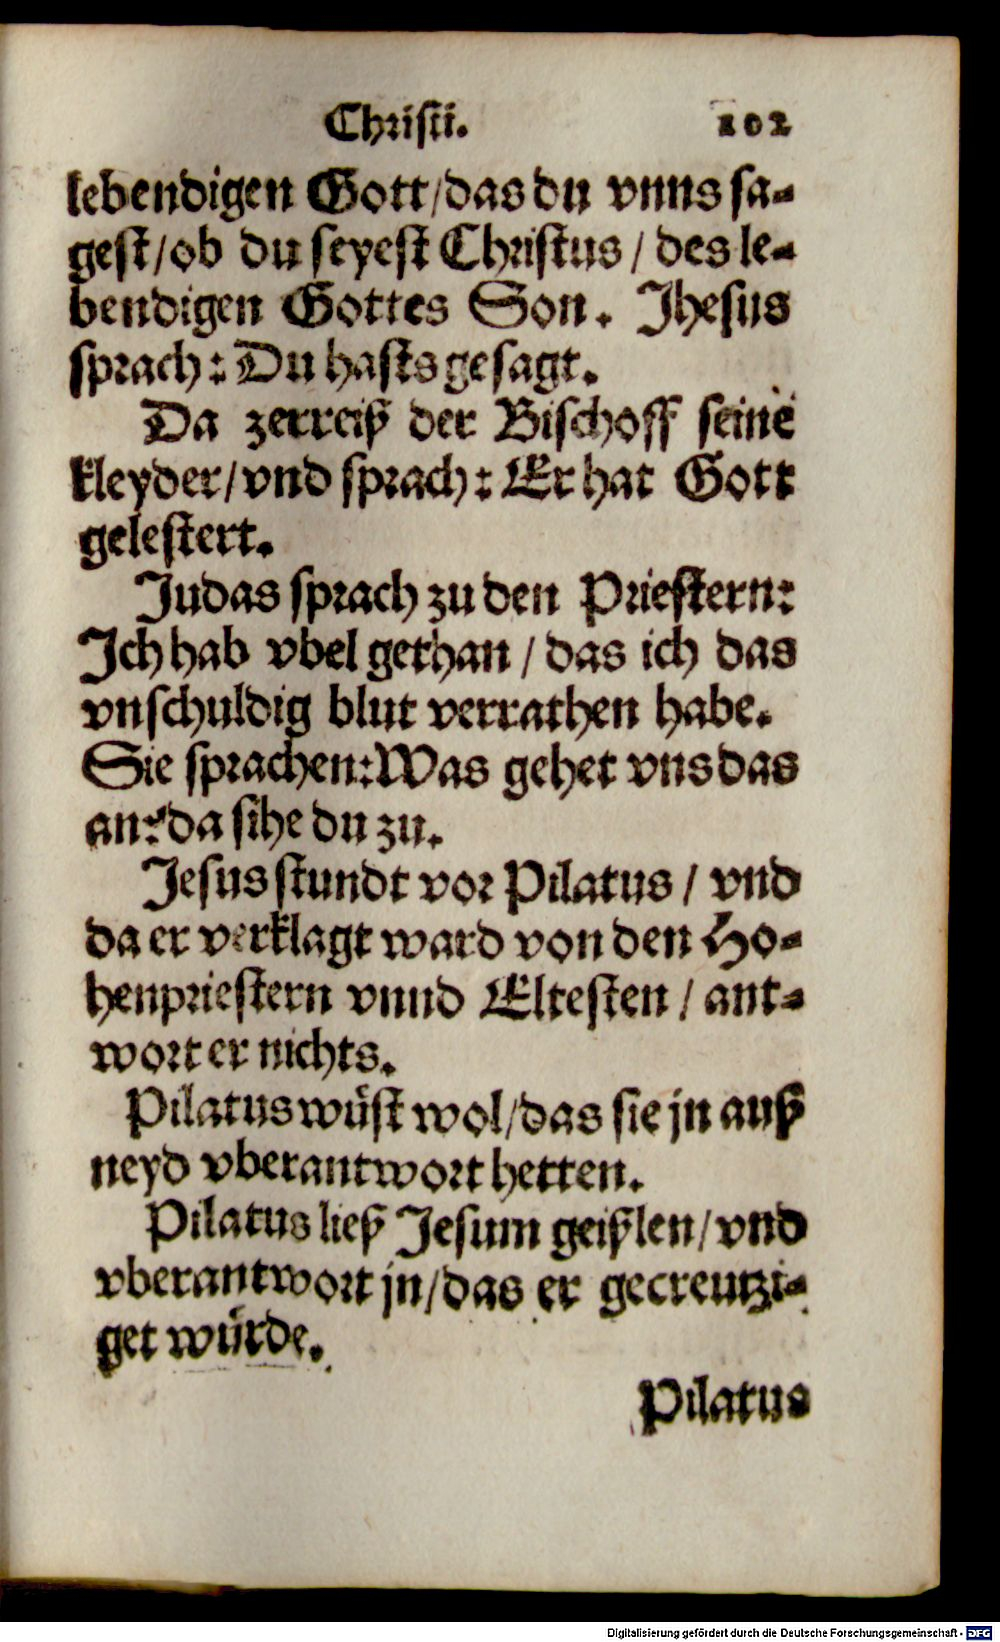 Christi. 102
lebendigen Gott/das du vnns sa-
gest/ob du seyest Christus/ des le-
bendigen Gottes Son. Jhesus
sprach: Du hasts gesagt.
Da zerreiß der Bischoff seine
kleyder/vnd sprach: Er hat Gott
gelestert.
Judas sprach zu den Priestern:
Ich hab vbel gethan/ das ich das
vnschuldig blut verrathen habe.
Sie sprachen: Was gehet vns das
an? da sihe du zu.
Jesus stundt vor Pilatus/ vnd
da er verklagt ward von den Ho-
henpriestern vnnd Eltesten/ ant-
wort er nichts.
Pilatus wüst wol/das sie jn auß
neyd vberantwort hetten.
Pilatus ließ Jesum geißlen/vnd
vberantwort jn/das er gecreutzi-
get würde.
Pilatus
Digitalisierung gefördert durch die Deutsche Forschungsgemeinschaft - DFG